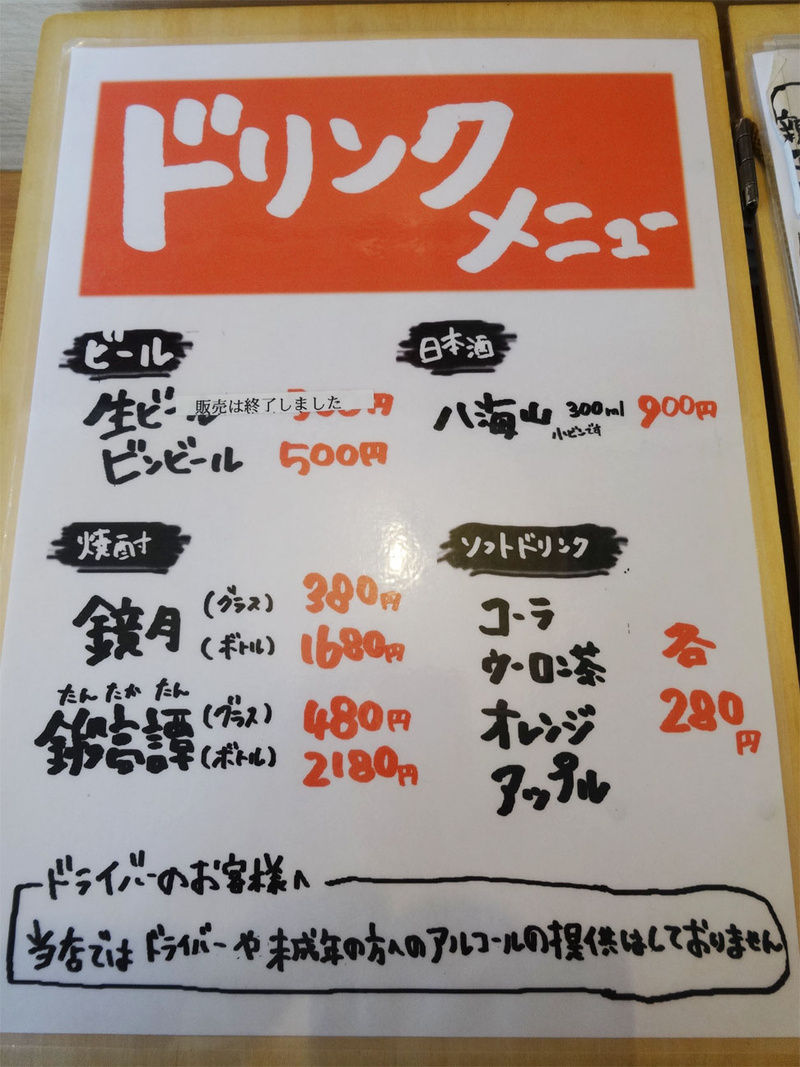 ドリンク
メニュー
ビール
生ビール 販売は終了しました 円
ビンビール 500円
日本酒
八海山 300ml 900円
小ビンです
焼酎
鏡月 (グラス) 380円
(ボトル) 1680円
たんたかたん
鍛高譚 (グラス) 480円
(ボトル) 2180円
ソフトドリンク
コーラ
ウーロン茶
オレンジ
アップル
各
280
円
ドライバーのお客様へ
当店ではドライバーや未成年の方へのアルコールの提供はしておりません